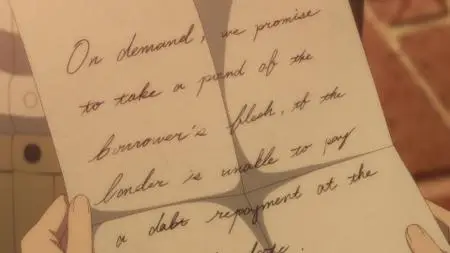 On demand, we promise
to take a pond of the
borrower's flesh, if the
londer is unable to pay
a dabt repayment at the